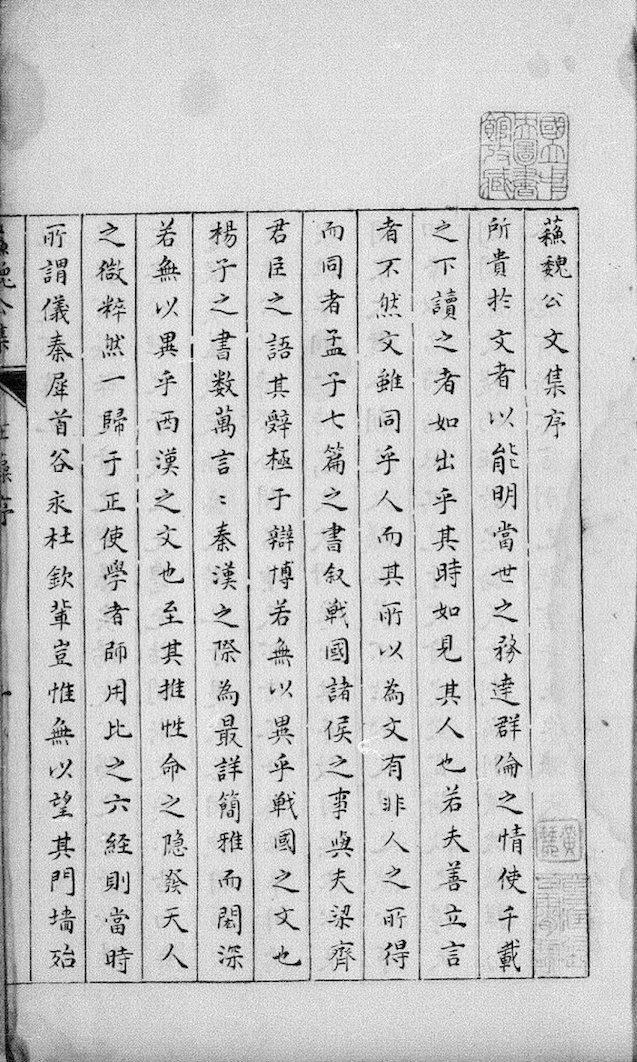 國立中央圖書館收藏
蘓魏公文集序
所貴扵文者以能明當世之務達群倫之情使千載
之下讀之者如出乎其時如見其人也若夫善立言
者不然文雖同乎人而其所以為文有非人之所得
而同者孟子七篇之書叙戰國諸侯之事與夫梁齊
君臣之語其辭極于辯博若無以異乎戰國之文也
楊子之書数萬言〻秦漢之際為最詳簡雅而閎深
若無以異乎西漢之文也至其推性命之隐發天人
之微粹然一歸于正使學者師用比之六經則當時
所謂儀秦犀首谷永杜欽軰豈惟無以望其門墻殆
蘓魏公集